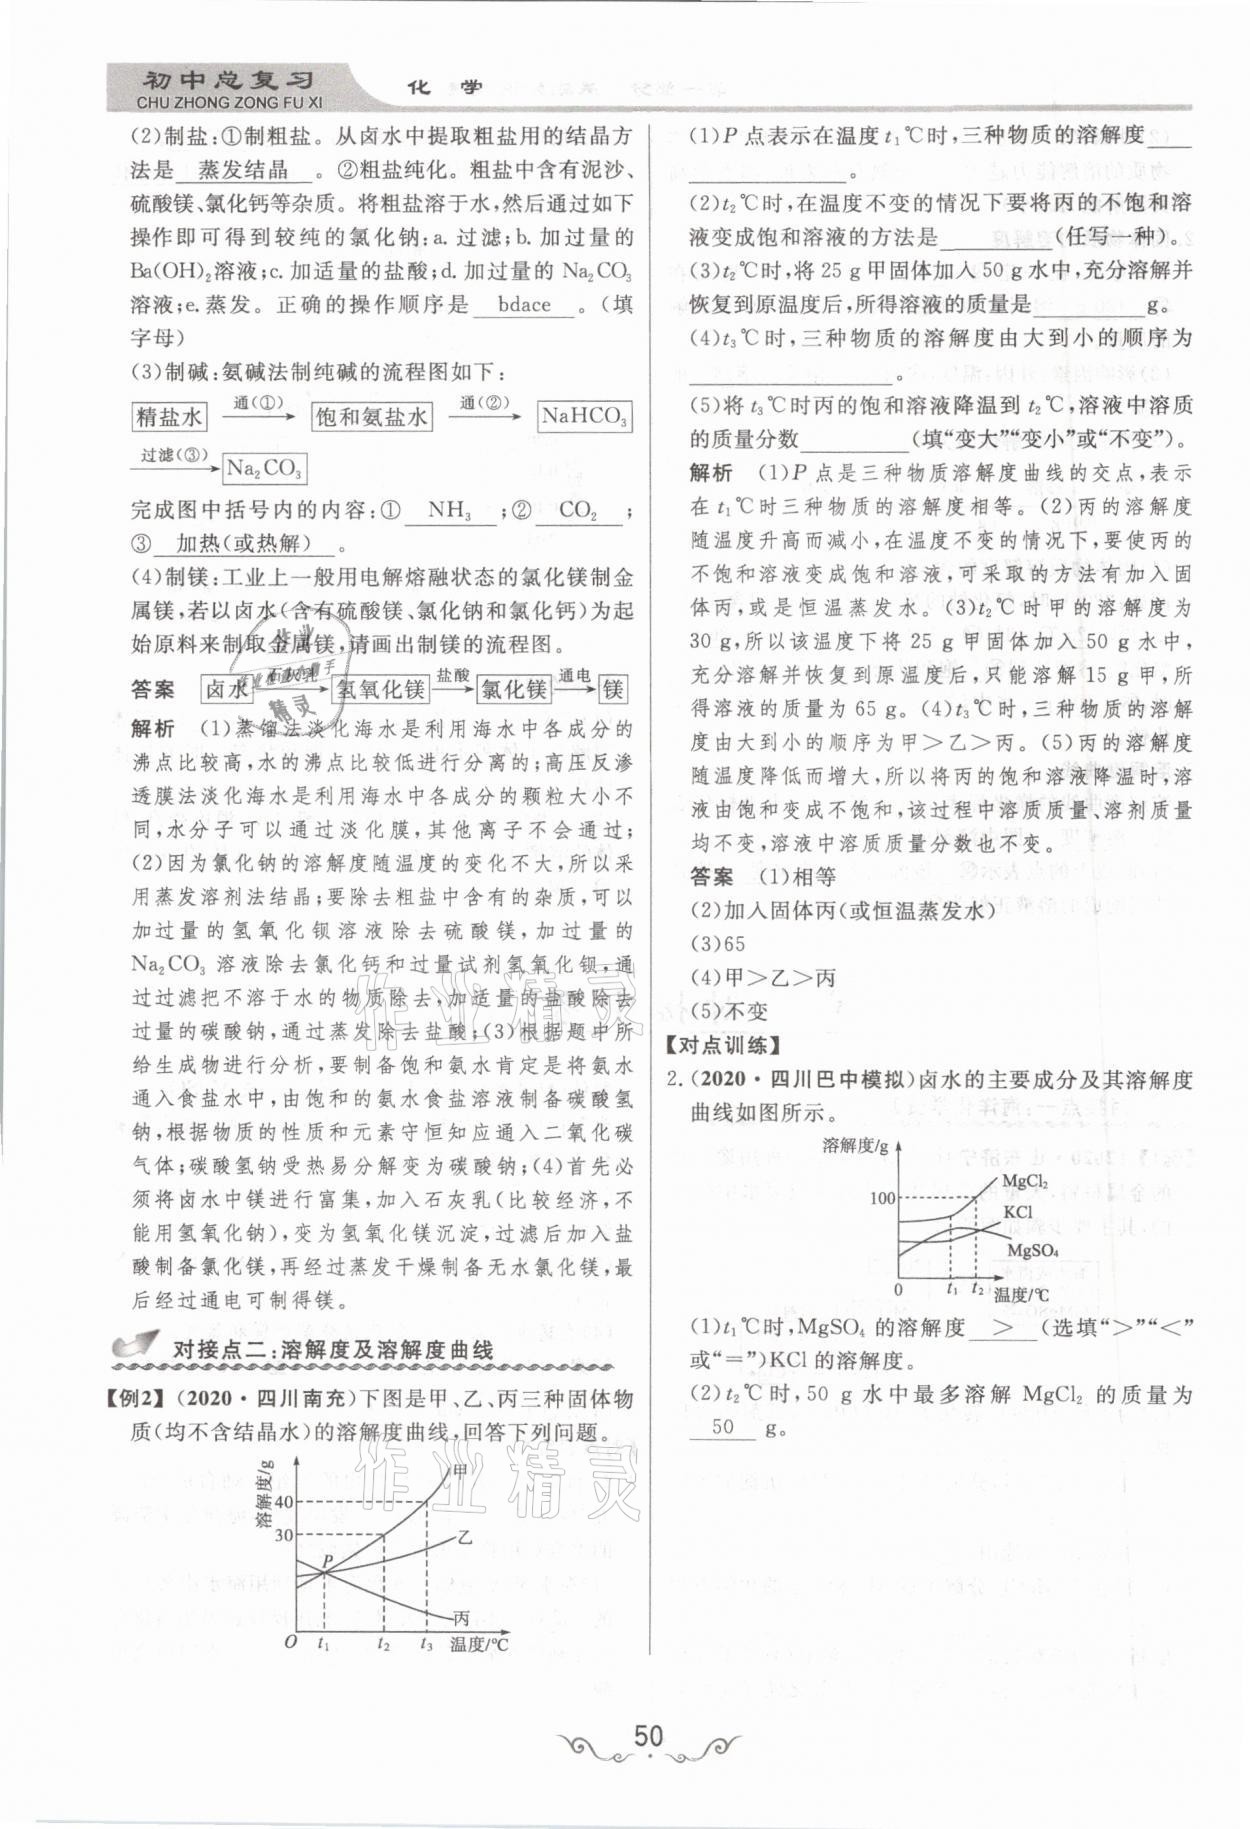 初中总复习
CHU ZHONG ZONG FU XI
化 学
(2)制盐:①制粗盐。从卤水中提取粗盐用的结晶方
法是 蒸发结晶 。②粗盐纯化。粗盐中含有泥沙、
硫酸镁、氯化钙等杂质。将粗盐溶于水,然后通过如下
操作即可得到较纯的氯化钠:a. 过滤;b. 加过量的
Ba(OH)₂溶液;c. 加适量的盐酸;d. 加过量的 Na₂CO₃
溶液;e. 蒸发。正确的操作顺序是 bdace 。(填
字母)
(3)制碱:氨碱法制纯碱的流程图如下:
精盐水 通(①) 饱和氨盐水 通(②) NaHCO₃
过滤(③) Na₂CO₃
完成图中括号内的内容:① NH₃ ;② CO₂ ;
③ 加热(或热解) 。
(4)制镁:工业上一般用电解熔融状态的氯化镁制金
属镁,若以卤水(含有硫酸镁、氯化钠和氯化钙)为起
始原料来制取金属镁,请画出制镁的流程图。
答案 卤水 石灰乳 氢氧化镁 盐酸 氯化镁 通电 镁
解析 (1)蒸馏法淡化海水是利用海水中各成分的
沸点比较高,水的沸点比较低进行分离的;高压反渗
透膜法淡化海水是利用海水中各成分的颗粒大小不
同,水分子可以通过淡化膜,其他离子不会通过;
(2)因为氯化钠的溶解度随温度的变化不大,所以采
用蒸发溶剂法结晶;要除去粗盐中含有的杂质,可以
加过量的氢氧化钡溶液除去硫酸镁,加过量的
Na₂CO₃ 溶液除去氯化钙和过量试剂氢氧化钡,通
过过滤把不溶于水的物质除去,加适量的盐酸除去
过量的碳酸钠,通过蒸发除去盐酸;(3)根据题中所
给生成物进行分析,要制备饱和氨水肯定是将氨水
通入食盐水中,由饱和的氨水食盐溶液制备碳酸氢
钠,根据物质的性质和元素守恒知应通入二氧化碳
气体;碳酸氢钠受热易分解变为碳酸钠;(4)首先必
须将卤水中镁进行富集,加入石灰乳(比较经济,不
能用氢氧化钠),变为氢氧化镁沉淀,过滤后加入盐
酸制备氯化镁,再经过蒸发干燥制备无水氯化镁,最
后经过通电可制得镁。
对接点二:溶解度及溶解度曲线
【例2】(2020·四川南充)下图是甲、乙、丙三种固体物
质(均不含结晶水)的溶解度曲线,回答下列问题。
溶解度/g
甲
40
30
乙
P
丙
O t₁ t₂ t₃ 温度/℃
(1)P 点表示在温度 t₁ ℃时,三种物质的溶解度
。
(2)t₂ ℃时,在温度不变的情况下要将丙的不饱和溶
液变成饱和溶液的方法是 (任写一种)。
(3)t₂ ℃时,将 25 g 甲固体加入 50 g 水中,充分溶解并
恢复到原温度后,所得溶液的质量是 g。
(4)t₃ ℃时,三种物质的溶解度由大到小的顺序为
。
(5)将 t₃ ℃时丙的饱和溶液降温到 t₂ ℃,溶液中溶质
的质量分数 (填“变大”“变小”或“不变”)。
解析 (1)P 点是三种物质溶解度曲线的交点,表示
在 t₁ ℃时三种物质的溶解度相等。(2)丙的溶解度
随温度升高而减小,在温度不变的情况下,要使丙的
不饱和溶液变成饱和溶液,可采取的方法有加入固
体丙,或是恒温蒸发水。(3)t₂ ℃时甲的溶解度为
30 g,所以该温度下将 25 g 甲固体加入 50 g 水中,
充分溶解并恢复到原温度后,只能溶解 15 g 甲,所
得溶液的质量为 65 g。(4)t₃ ℃时,三种物质的溶解
度由大到小的顺序为甲>乙>丙。(5)丙的溶解度
随温度降低而增大,所以将丙的饱和溶液降温时,溶
液由饱和变成不饱和,该过程中溶质质量、溶剂质量
均不变,溶液中溶质质量分数也不变。
答案 (1)相等
(2)加入固体丙(或恒温蒸发水)
(3)65
(4)甲>乙>丙
(5)不变
【对点训练】
2. (2020·四川巴中模拟)卤水的主要成分及其溶解度
曲线如图所示。
溶解度/g
MgCl₂
100
KCl
MgSO₄
0 t₁ t₂ 温度/℃
(1)t₁ ℃时,MgSO₄ 的溶解度 > (选填“>”“<”
或“=”)KCl 的溶解度。
(2)t₂ ℃时,50 g 水中最多溶解 MgCl₂ 的质量为
50 g。
50
作业精灵
作业精灵
作业
精灵